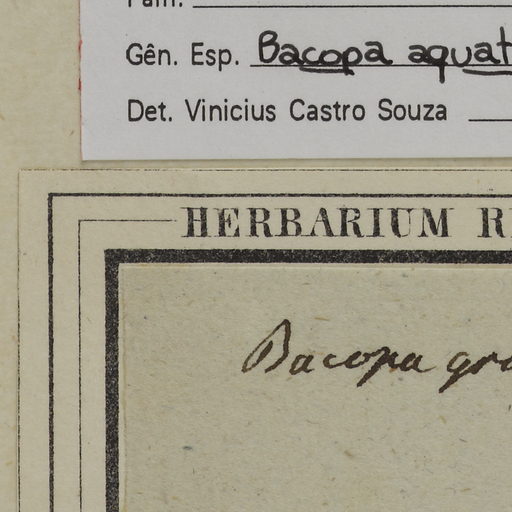 Fam.
Gên. Esp. Bacopa aquat
Det. Vinicius Castro Souza
HERBARIUM R
Bacopa gra